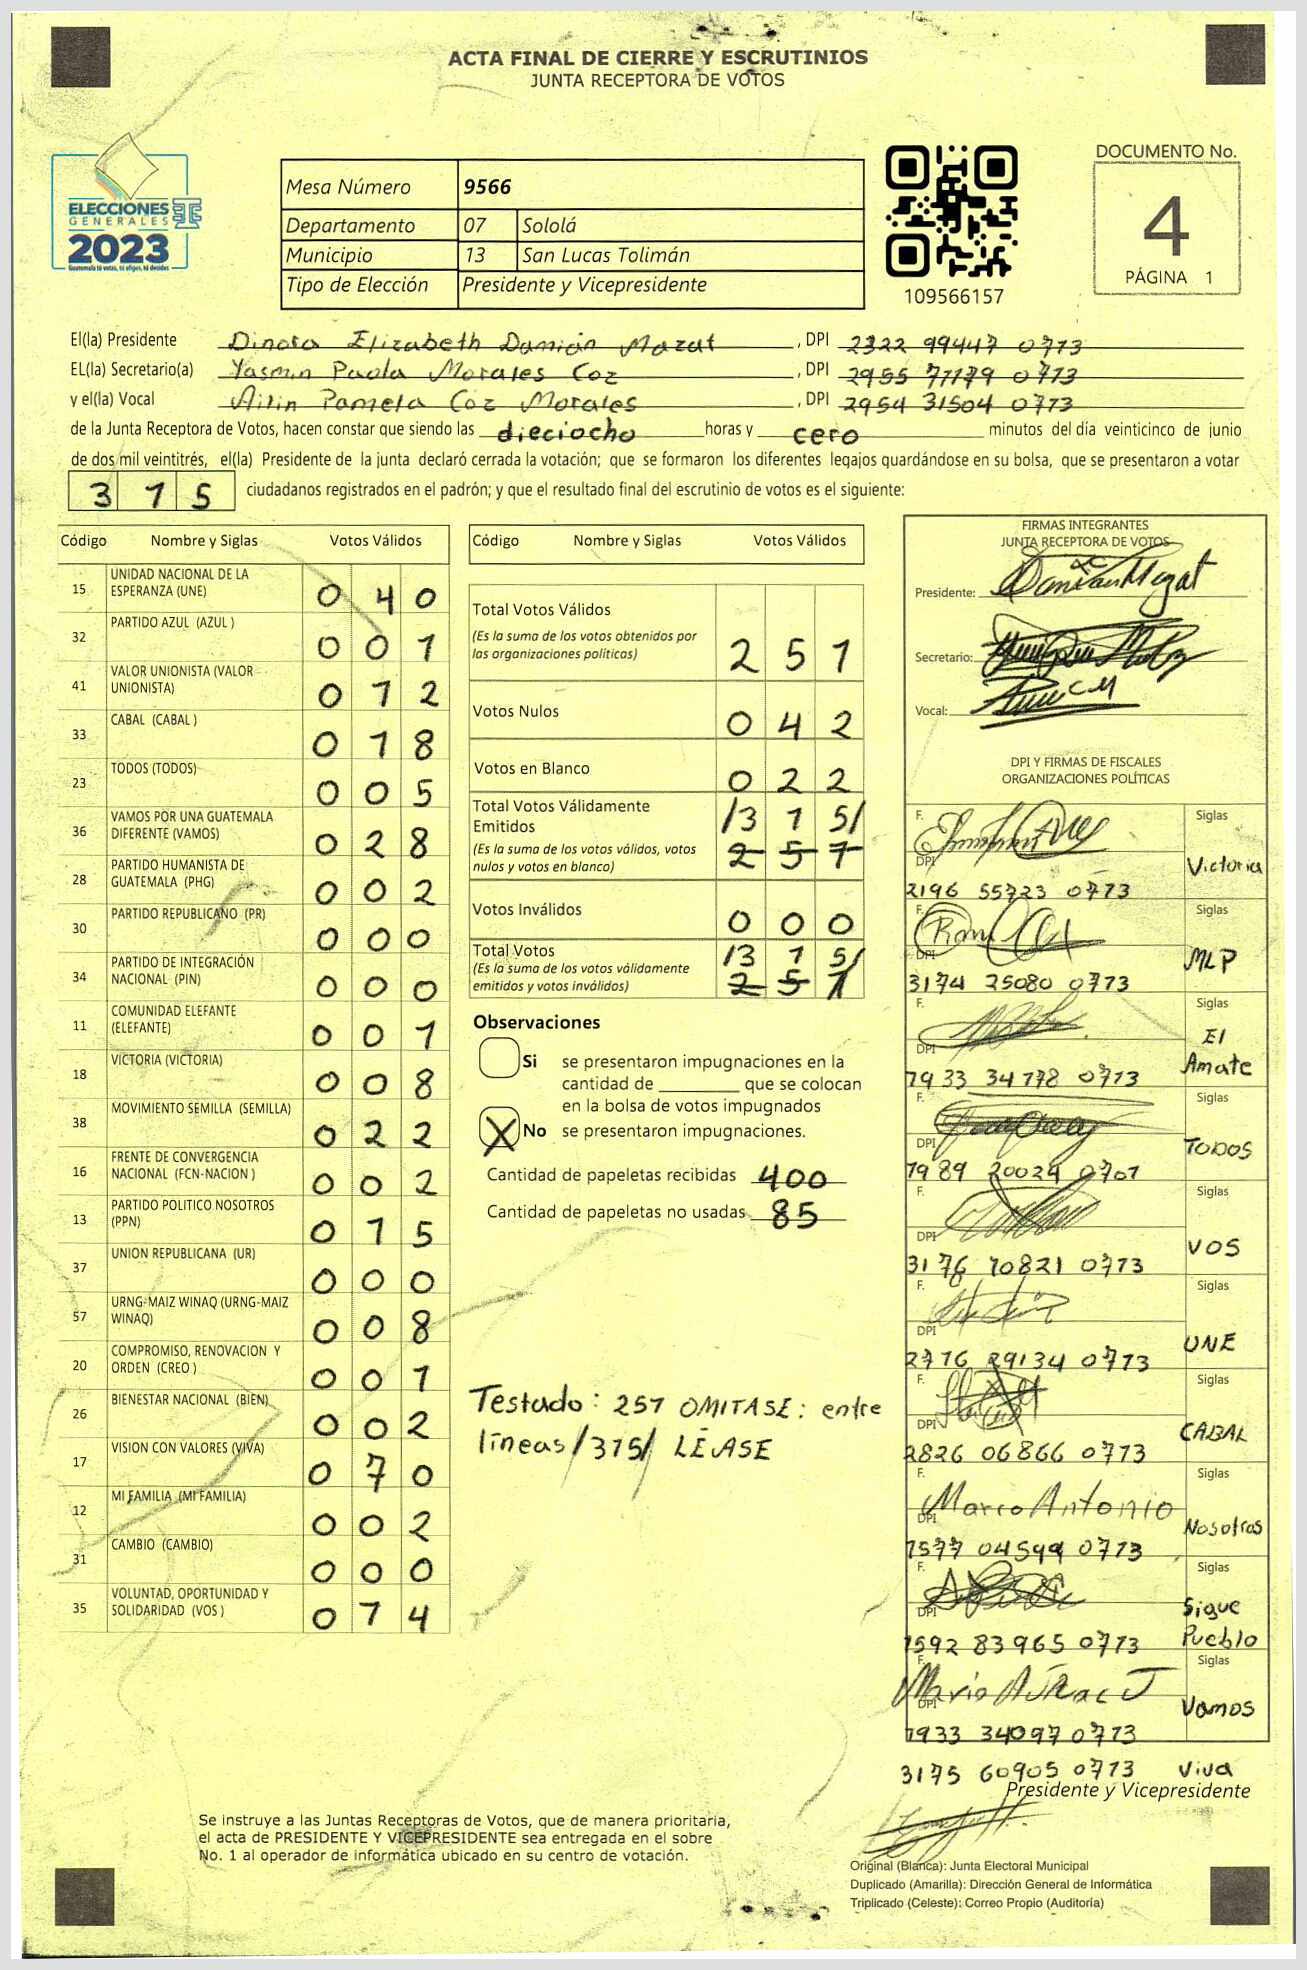 ACTA FINAL DE CIERRE Y ESCRUTINIOS
JUNTA RECEPTORA DE VOTOS
ELECCIONES
GENERALES
2023
Guatemala tú votas, tú eliges, tú decides
Mesa Número 9566
Departamento 07 Sololá
Municipio 13 San Lucas Tolimán
Tipo de Elección Presidente y Vicepresidente
109566157
DOCUMENTO No.
4
PÁGINA 1
El(la) Presidente Dinora Elizabeth Damián Mazat , DPI 2322 99447 0713
EL(la) Secretario(a) Yasmin Paola Morales Coz , DPI 2955 71179 0713
y el(la) Vocal Ailin Pamela Coz Morales , DPI 2954 31504 0713
de la Junta Receptora de Votos, hacen constar que siendo las dieciocho horas y cero minutos del día veinticinco de junio
de dos mil veintitrés, el(la) Presidente de la junta declaró cerrada la votación; que se formaron los diferentes legajos quardándose en su bolsa, que se presentaron a votar
315 ciudadanos registrados en el padrón; y que el resultado final del escrutinio de votos es el siguiente:
Código Nombre y Siglas Votos Válidos
15 UNIDAD NACIONAL DE LA ESPERANZA (UNE) 0 4 0
32 PARTIDO AZUL (AZUL ) 0 0 1
41 VALOR UNIONISTA (VALOR UNIONISTA) 0 1 2
33 CABAL (CABAL ) 0 1 8
23 TODOS (TODOS) 0 0 5
36 VAMOS POR UNA GUATEMALA DIFERENTE (VAMOS) 0 2 8
28 PARTIDO HUMANISTA DE GUATEMALA (PHG) 0 0 2
30 PARTIDO REPUBLICANO (PR) 0 0 0
34 PARTIDO DE INTEGRACIÓN NACIONAL (PIN) 0 0 0
11 COMUNIDAD ELEFANTE (ELEFANTE) 0 0 1
18 VICTORIA (VICTORIA) 0 0 8
38 MOVIMIENTO SEMILLA (SEMILLA) 0 2 2
16 FRENTE DE CONVERGENCIA NACIONAL (FCN-NACION ) 0 0 2
13 PARTIDO POLITICO NOSOTROS (PPN) 0 1 5
37 UNION REPUBLICANA (UR) 0 0 0
57 URNG-MAIZ WINAQ (URNG-MAIZ WINAQ) 0 0 8
20 COMPROMISO, RENOVACION Y ORDEN (CREO ) 0 0 1
26 BIENESTAR NACIONAL (BIEN) 0 0 2
17 VISION CON VALORES (VIVA) 0 7 0
12 MI FAMILIA (MI FAMILIA) 0 0 2
31 CAMBIO (CAMBIO) 0 0 0
35 VOLUNTAD, OPORTUNIDAD Y SOLIDARIDAD (VOS ) 0 1 4
Código Nombre y Siglas Votos Válidos
Total Votos Válidos
(Es la suma de los votos obtenidos por
las organizaciones politicas) 2 5 1
Votos Nulos 0 4 2
Votos en Blanco 0 2 2
Total Votos Válidamente
Emitidos /3 1 5/
(Es la suma de los votos válidos, votos
nulos y votos en blanco) 2 5 1
Votos Inválidos 0 0 0
Total Votos /3 1 5/
(Es la suma de los votos válidamente
emitidos y votos inválidos) 2 5 1
Observaciones
Si se presentaron impugnaciones en la
cantidad de ________ que se colocan
en la bolsa de votos impugnados
X No se presentaron impugnaciones.
Cantidad de papeletas recibidas 400
Cantidad de papeletas no usadas 85
Testado: 251 OMITASE: entre
líneas /315/ LÉASE
FIRMAS INTEGRANTES
JUNTA RECEPTORA DE VOTOS
Presidente:
Secretario:
Vocal:
DPI Y FIRMAS DE FISCALES
ORGANIZACIONES POLÍTICAS
F. Siglas
DPI Victoria
2196 55723 0713
F. Siglas
DPI MLP
3174 25080 0713
F. Siglas
DPI El Amate
1933 34778 0713
F. Siglas
DPI TODOS
1989 20029 0701
F. Siglas
DPI VOS
3176 10821 0713
F. Siglas
DPI UNE
2776 29134 0713
F. Siglas
DPI CABAL
2826 06866 0713
F. Marco Antonio Siglas
DPI Nosotros
1577 04599 0713
F. Siglas
DPI Sigue Pueblo
1592 83965 0713
F. Siglas
DPI Vamos
1933 34097 0713
3175 60905 0713 Viva
Presidente y Vicepresidente
Se instruye a las Juntas Receptoras de Votos, que de manera prioritaria,
el acta de PRESIDENTE Y VICEPRESIDENTE sea entregada en el sobre
No. 1 al operador de informática ubicado en su centro de votación.
Original (Blanca): Junta Electoral Municipal
Duplicado (Amarilla): Dirección General de Informática
Triplicado (Celeste): Correo Propio (Auditoría)